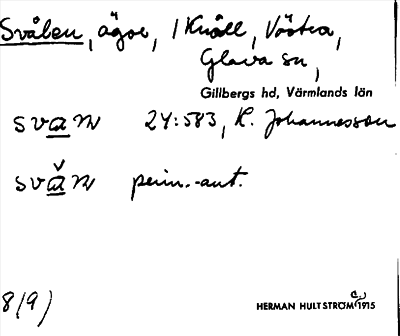 Svålen, ägor, i Knåll, Västra,
Glava sn,
Gillbergs hd, Värmlands län
svan 24:583, K. Johannesson
svǎn perm.-ant.
8(9)
HERMAN HULTSTRÖM c. 1915